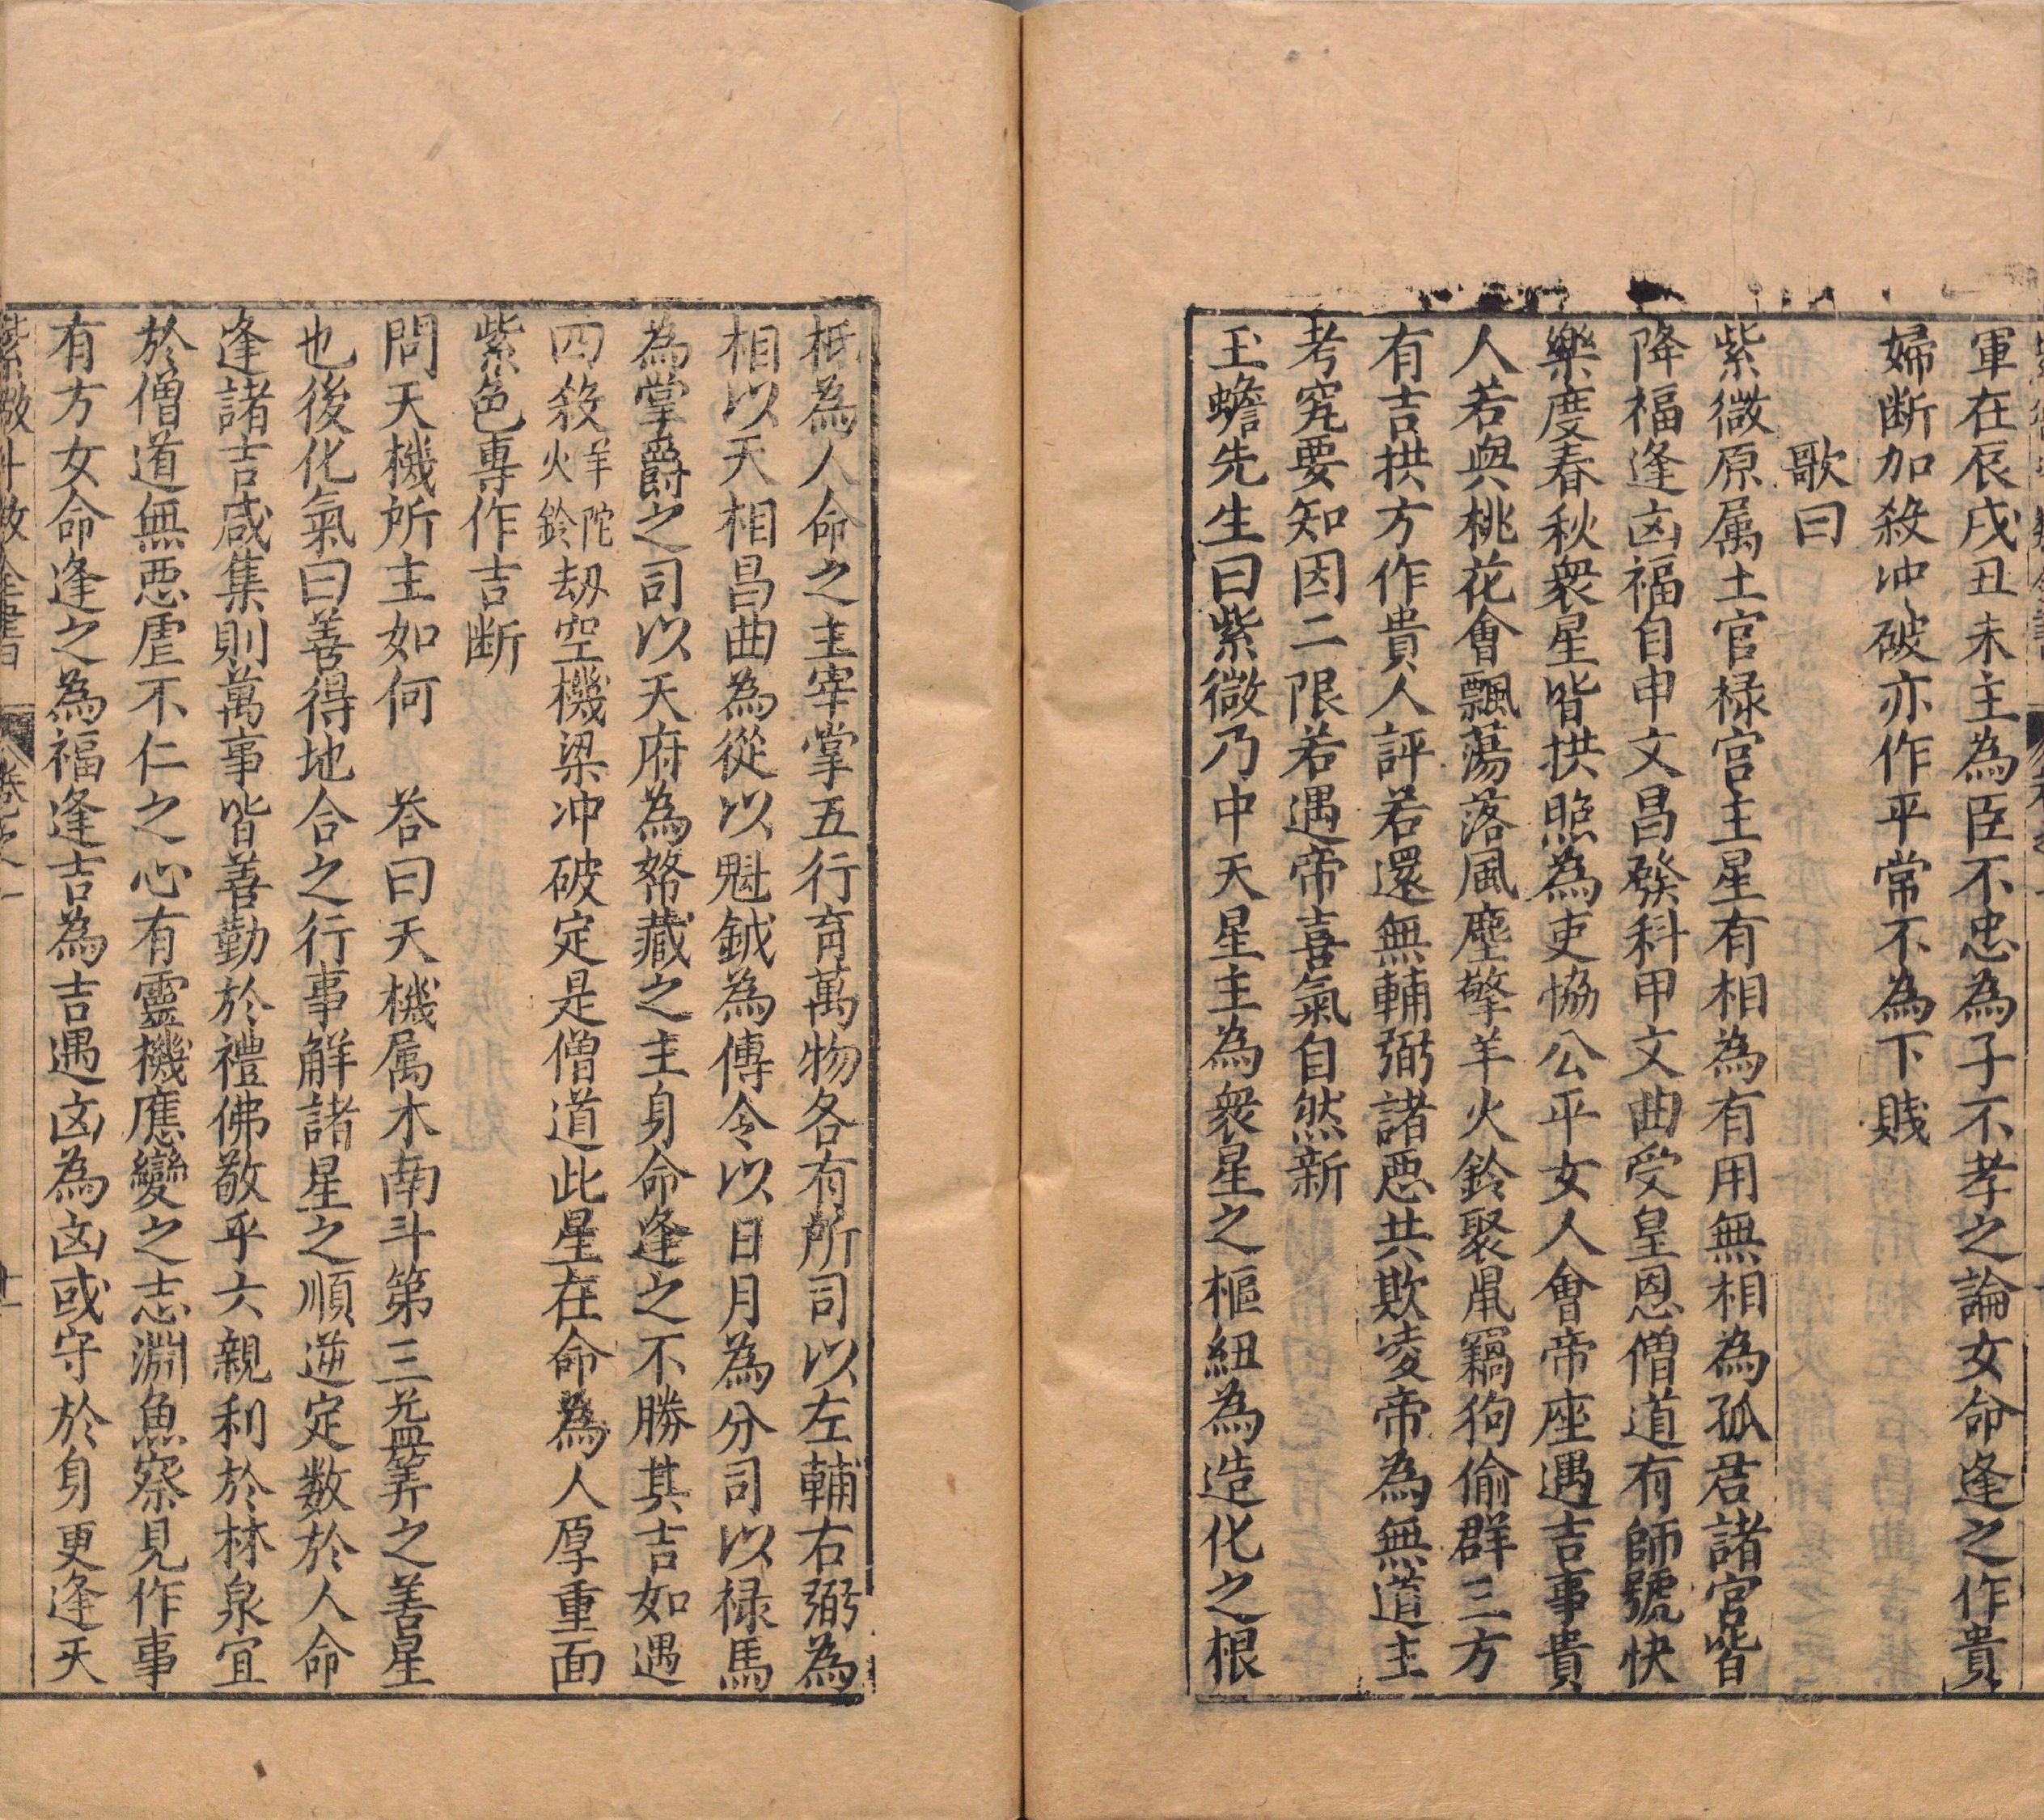 軍在辰戌丑未主為臣不忠為子不孝之論女命逢之作貴
婦断加殺冲破亦作平常不為下賤
歌曰
紫微原属土官禄宮主星有相為有用無相為孤君諸宮皆
降福逢凶福自申文昌發科甲文曲受皇恩僧道有師號快
樂度春秋衆星皆拱照為吏恊公平女人會帝座遇吉事貴
人若與桃花會飄蕩落風塵擎羊火鈴聚鼡竊狗偷群三方
有吉拱方作貴人評若還無輔弼諸悪共欺凌帝為無道主
考究要知因二限若遇帝喜氣自然新
玉蟾先生曰紫微乃中天星主為衆星之樞紐為造化之根
柢為人命之主宰掌五行育萬物各有所司以左輔右弼為
相以天相昌曲為從以魁鉞為傳令以日月為分司以禄馬
為掌爵之司以天府為帑藏之主身命逢之不勝其吉如遇
四殺羊陀火鈴劫空機梁冲破定是僧道此星在命為人厚重面
紫色專作吉断
問天機所主如何 荅曰天機属木南斗第三益筭之善星
也後化氣曰善得地合之行事解諸星之順逆定数於人命
逢諸吉咸集則萬事皆善勤於禮佛敬乎六親利於林泉宜
於僧道無悪虐不仁之心有靈機應變之志淵魚察見作事
有方女命逢之為福逢吉為吉遇凶為凶或守於身更逢天
紫微斗数全書 卷之一